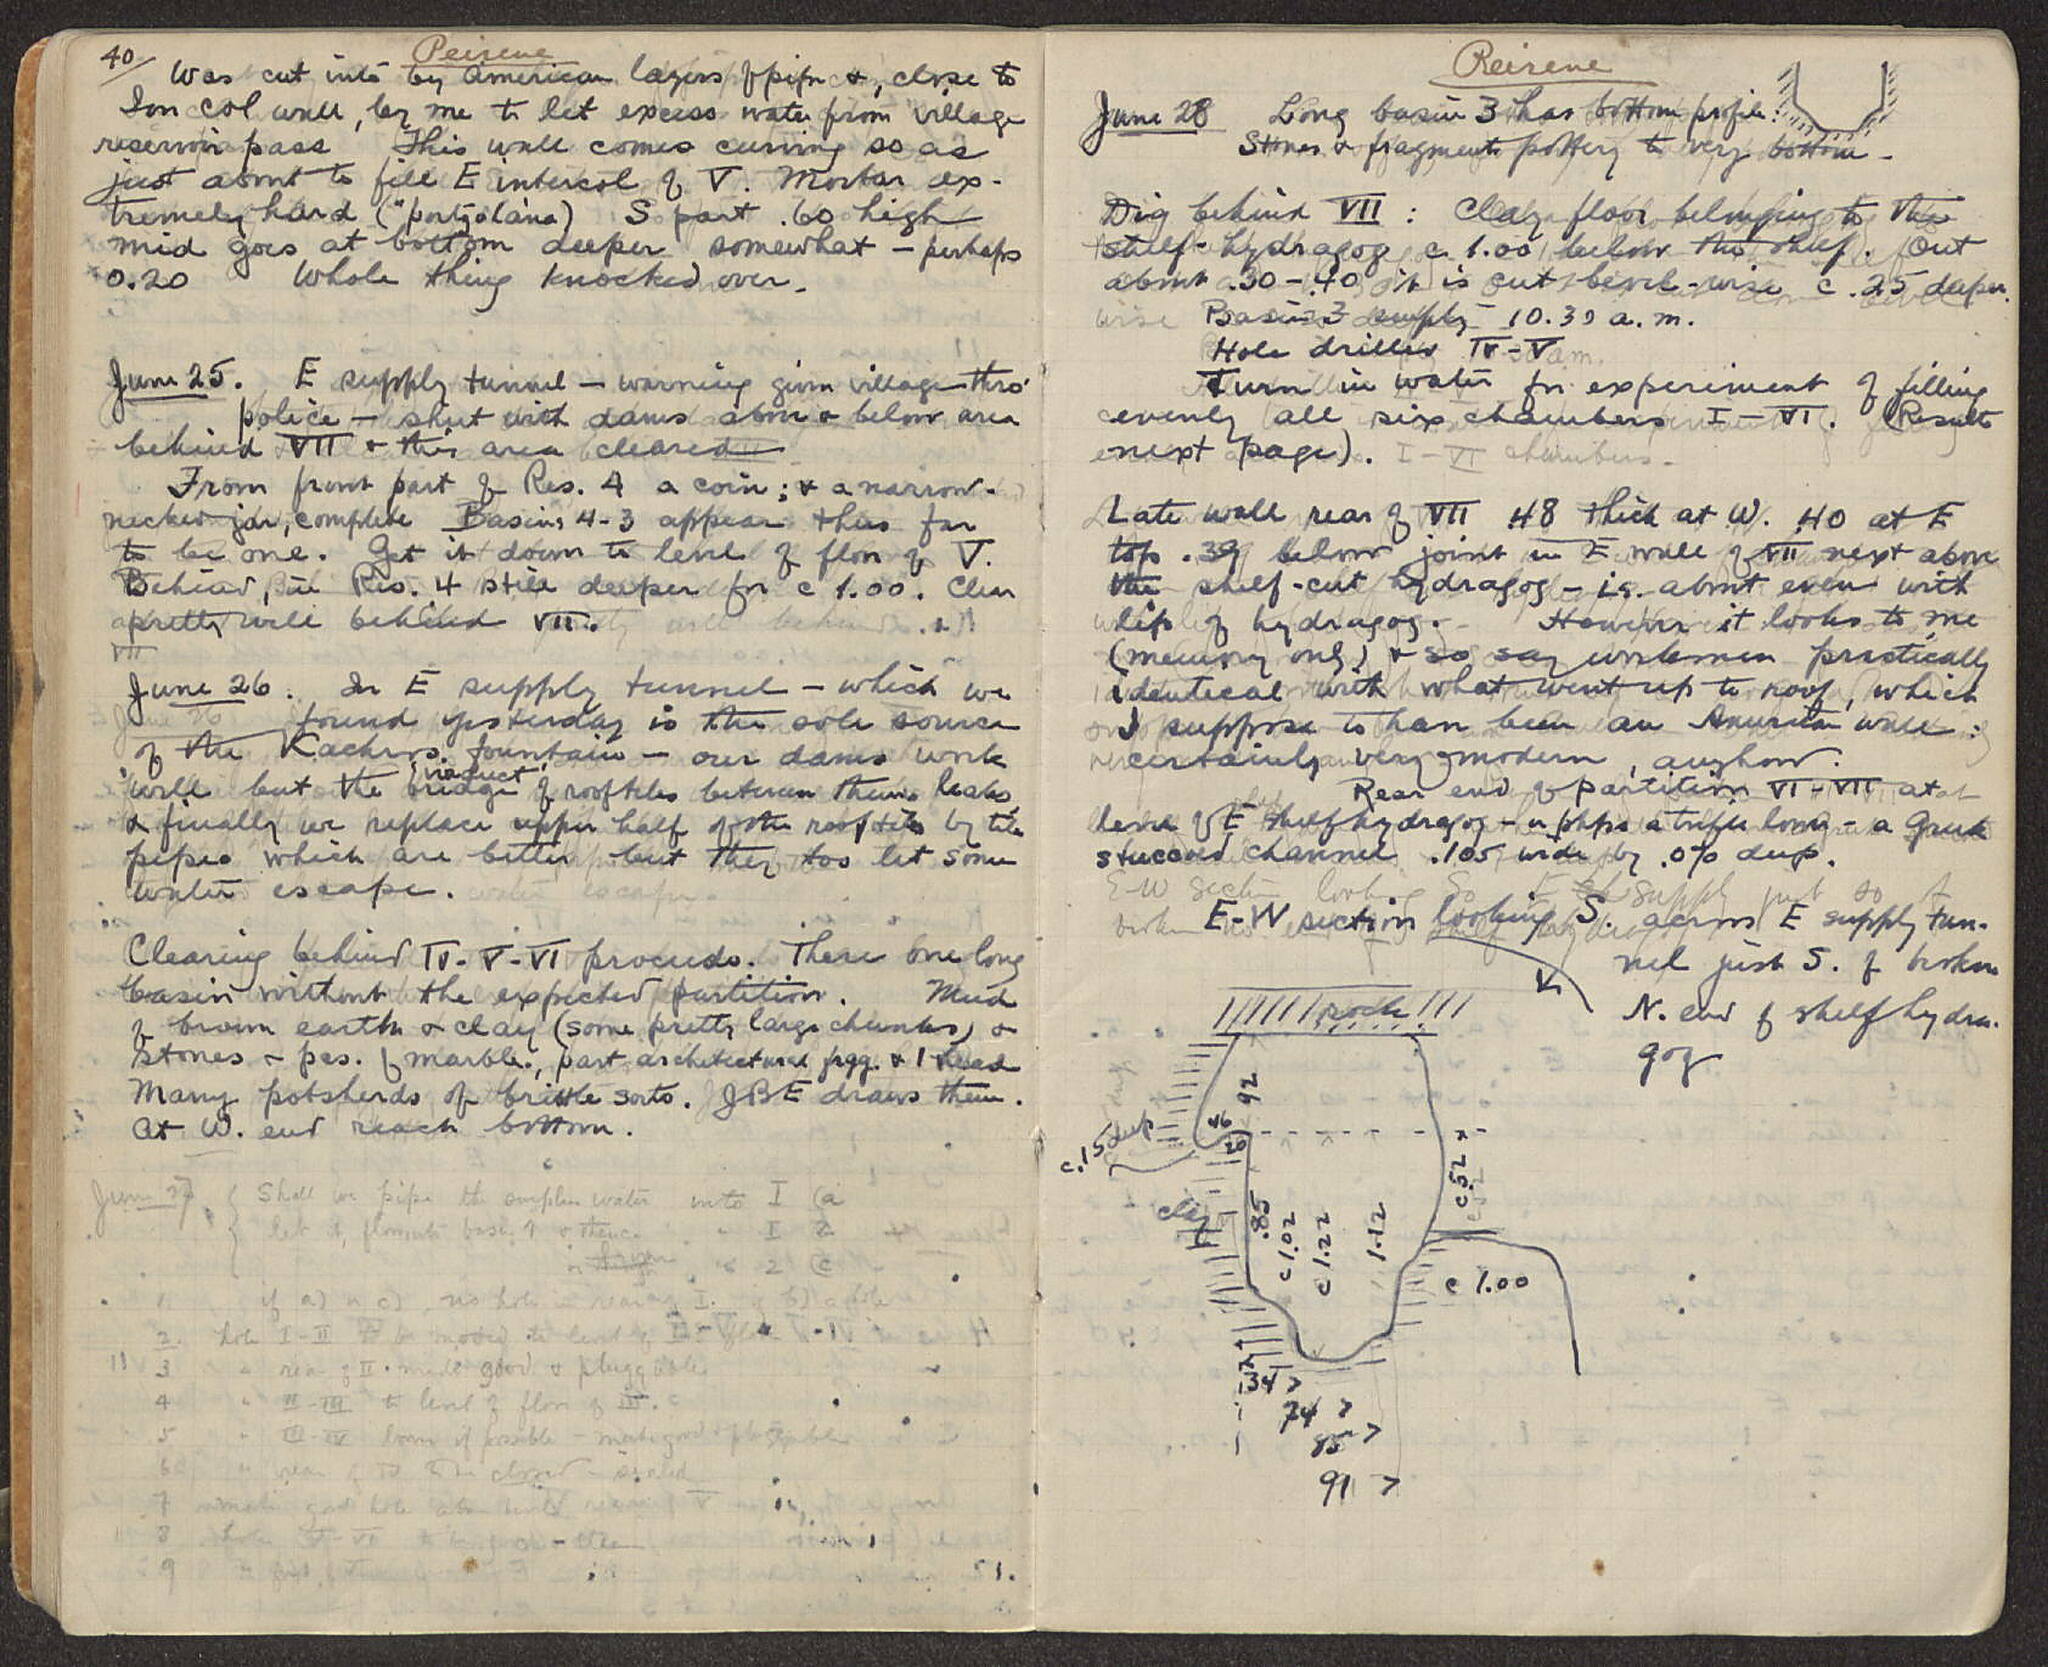 40/ Peirene
Was cut into by American layers of pipe &, close to
Ion col wall, by me to let excess water from village
reservoir pass This wall comes curving so as
just about to fill E intercol of V. Mortar ex-
tremely hard ("portzolána) S part .60 high
mid goes at bottom deeper somewhat – perhaps
0.20 Whole thing knocked over.
June 25. E supply tunnel – warning given village thro'
police – shut with dams above & below area
behind VII & this area cleared
From front part of Res. 4 a coin; & a narrow-
necked jar, complete Basins 4-3 appear thus far
to be one. Get it down to level of floor of V.
Behind, in Res. 4 still deeper for c 1.00. Clear
pretty well behind VII.
June 26. In E supply tunnel – which we
found yesterday is the sole source
of the Kachros fountain – our dams work
well but the bridge viaduct of rooftiles between them leaks,
& finally we replace upper half of the rooftiles by tile
pipes which are better, but they too let some
water escape.
Clearing behind IV-V-VI proceeds. There one long
basin without the expected partition. Mud
of brown earth & clay (some pretty large chunks) &
stones & pcs. of marble, part architectural frgg. & 1 head
Many potsherds of brittle sorts. JBE draws them.
At W. end reach bottom.
June 27. Shall we pipe the surplus water into I (a
let it flow into basin 1 & thence " I
" 2 (c
1 if a) or c), no hole in rear of I. if b) a hole
2. hole I-II to be moved to level of
3 " rear of II made good & pluggable
4 " II-III to level of floor of III.
5 " III-IV lower if possible – make good & pluggable
6 " rear of IV to be closed – sealed
7 make good hole rear of V
8 hole V-VI
9
Peirene
June 28 Long basin 3 has bottom profile:
Stones & fragments pottery to very bottom –
Dig behind VII: Clay floor belonging to the
shelf-hydragog c 1.00 below the shelf. Out
about .30–.40 it is cut bevel-wise c .25 deeper.
Basin 3 empty 10.30 a.m.
Hole drilled IV-V
Turn in water for experiment of filling
evenly all six chambers I–VI. (Result
next page).
Late wall rear of VII 48 thick at W. 40 at E
top .39 below joint in E wall of VII next above
the shelf-cut hydragog – i.e. about even with
lip of hydragog. However it looks to me
(memory only) & so say workmen practically
identical with what went up to roof, which
I suppose to have been an American wall:
certainly very modern, anyhow.
Rear end of partition VI-VII at
level of E shelf hydragog – or phps a trifle lower – a Greek
stuccoed channel .105 wide by .070 deep.
E-W section looking S. across E supply tun-
nel just S. of broken
N. end of shelf hydra-
gog
rock
92
c.15 deep
46
20
c.52
clay
.85
c 1.02
c 1.22
1.12
c 1.00
34 >
74 >
85 >
91 >